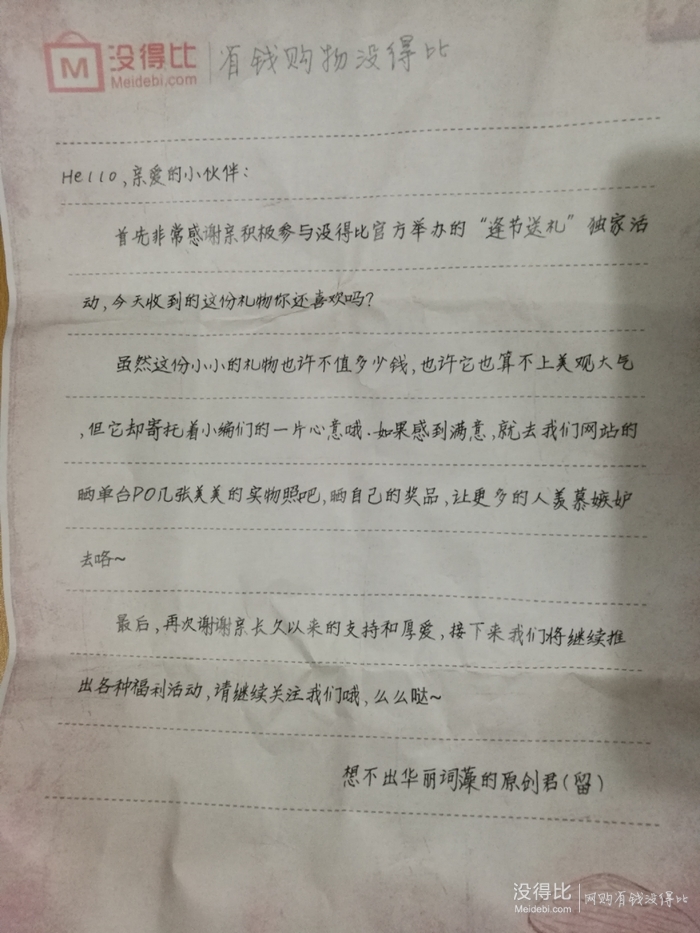 M 没得比 Meidebi.com | 有钱购物没得比
Hello,亲爱的小伙伴:
首先非常感谢亲积极参与没得比官方举办的“逢节送礼”独家活
动,今天收到的这份礼物你还喜欢吗?
虽然这份小小的礼物也许不值多少钱,也许它也算不上美观大气
,但它却寄托着小编们的一片心意哦.如果感到满意,就去我们网站的
晒单台PO几张美美的实物照吧,晒自己的奖品,让更多的人羡慕嫉妒
去咯~
最后,再次谢谢亲长久以来的支持和厚爱,接下来我们将继续推
出各种福利活动,请继续关注我们哦,么么哒~
想不出华丽词藻的原创君(留)
没得比 Meidebi.com | 网购有钱没得比